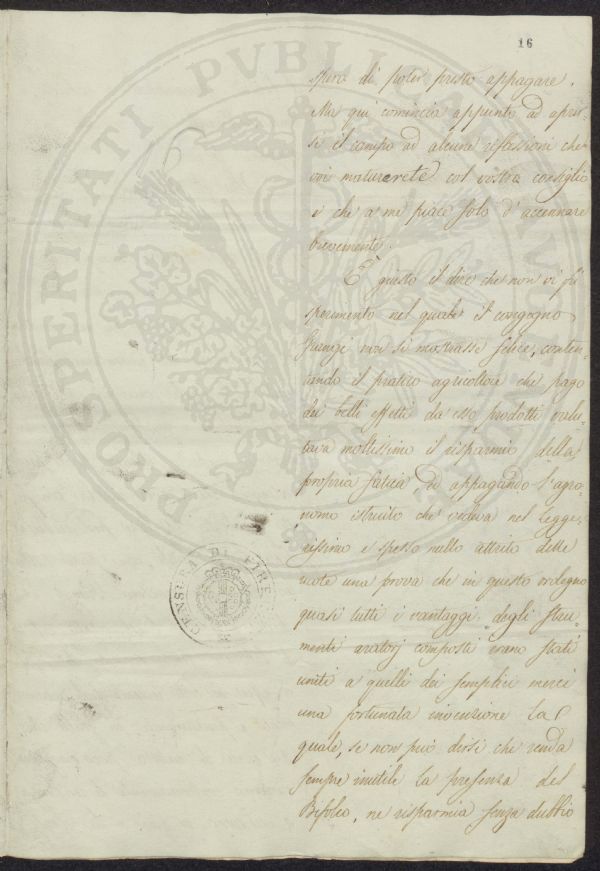 16
spera di poter presto appagare.
Ma qui comincia appunto ad aprir-
si il campo ad alcune riflessioni che
voi maturerete col vostro consiglio
e che a me piace solo d'accennare
brevemente.
E' giusto il dire che non vi fu
sperimento nel quale il congegno
non si mostrasse felice, conten-
tando il pratico agricoltore che pago
dei belli effetti da esso prodotti valu-
tava moltissimo il risparmio della
propria fatica ed appagando l'agro-
nomo istruito che vedeva nel legge-
rissimo e spesso nullo attrito delle
ruote una prova che in questo ordegno
quasi tutti i vantaggi degli stru-
menti aratorj composti erano stati
uniti a quelli dei semplici mercè
una fortunata invenzione la
quale, se non può dirsi che renda
sempre inutile la presenza del
Bifolco, ne risparmia senza dubbio
PROSPERITATI PVBLICAE